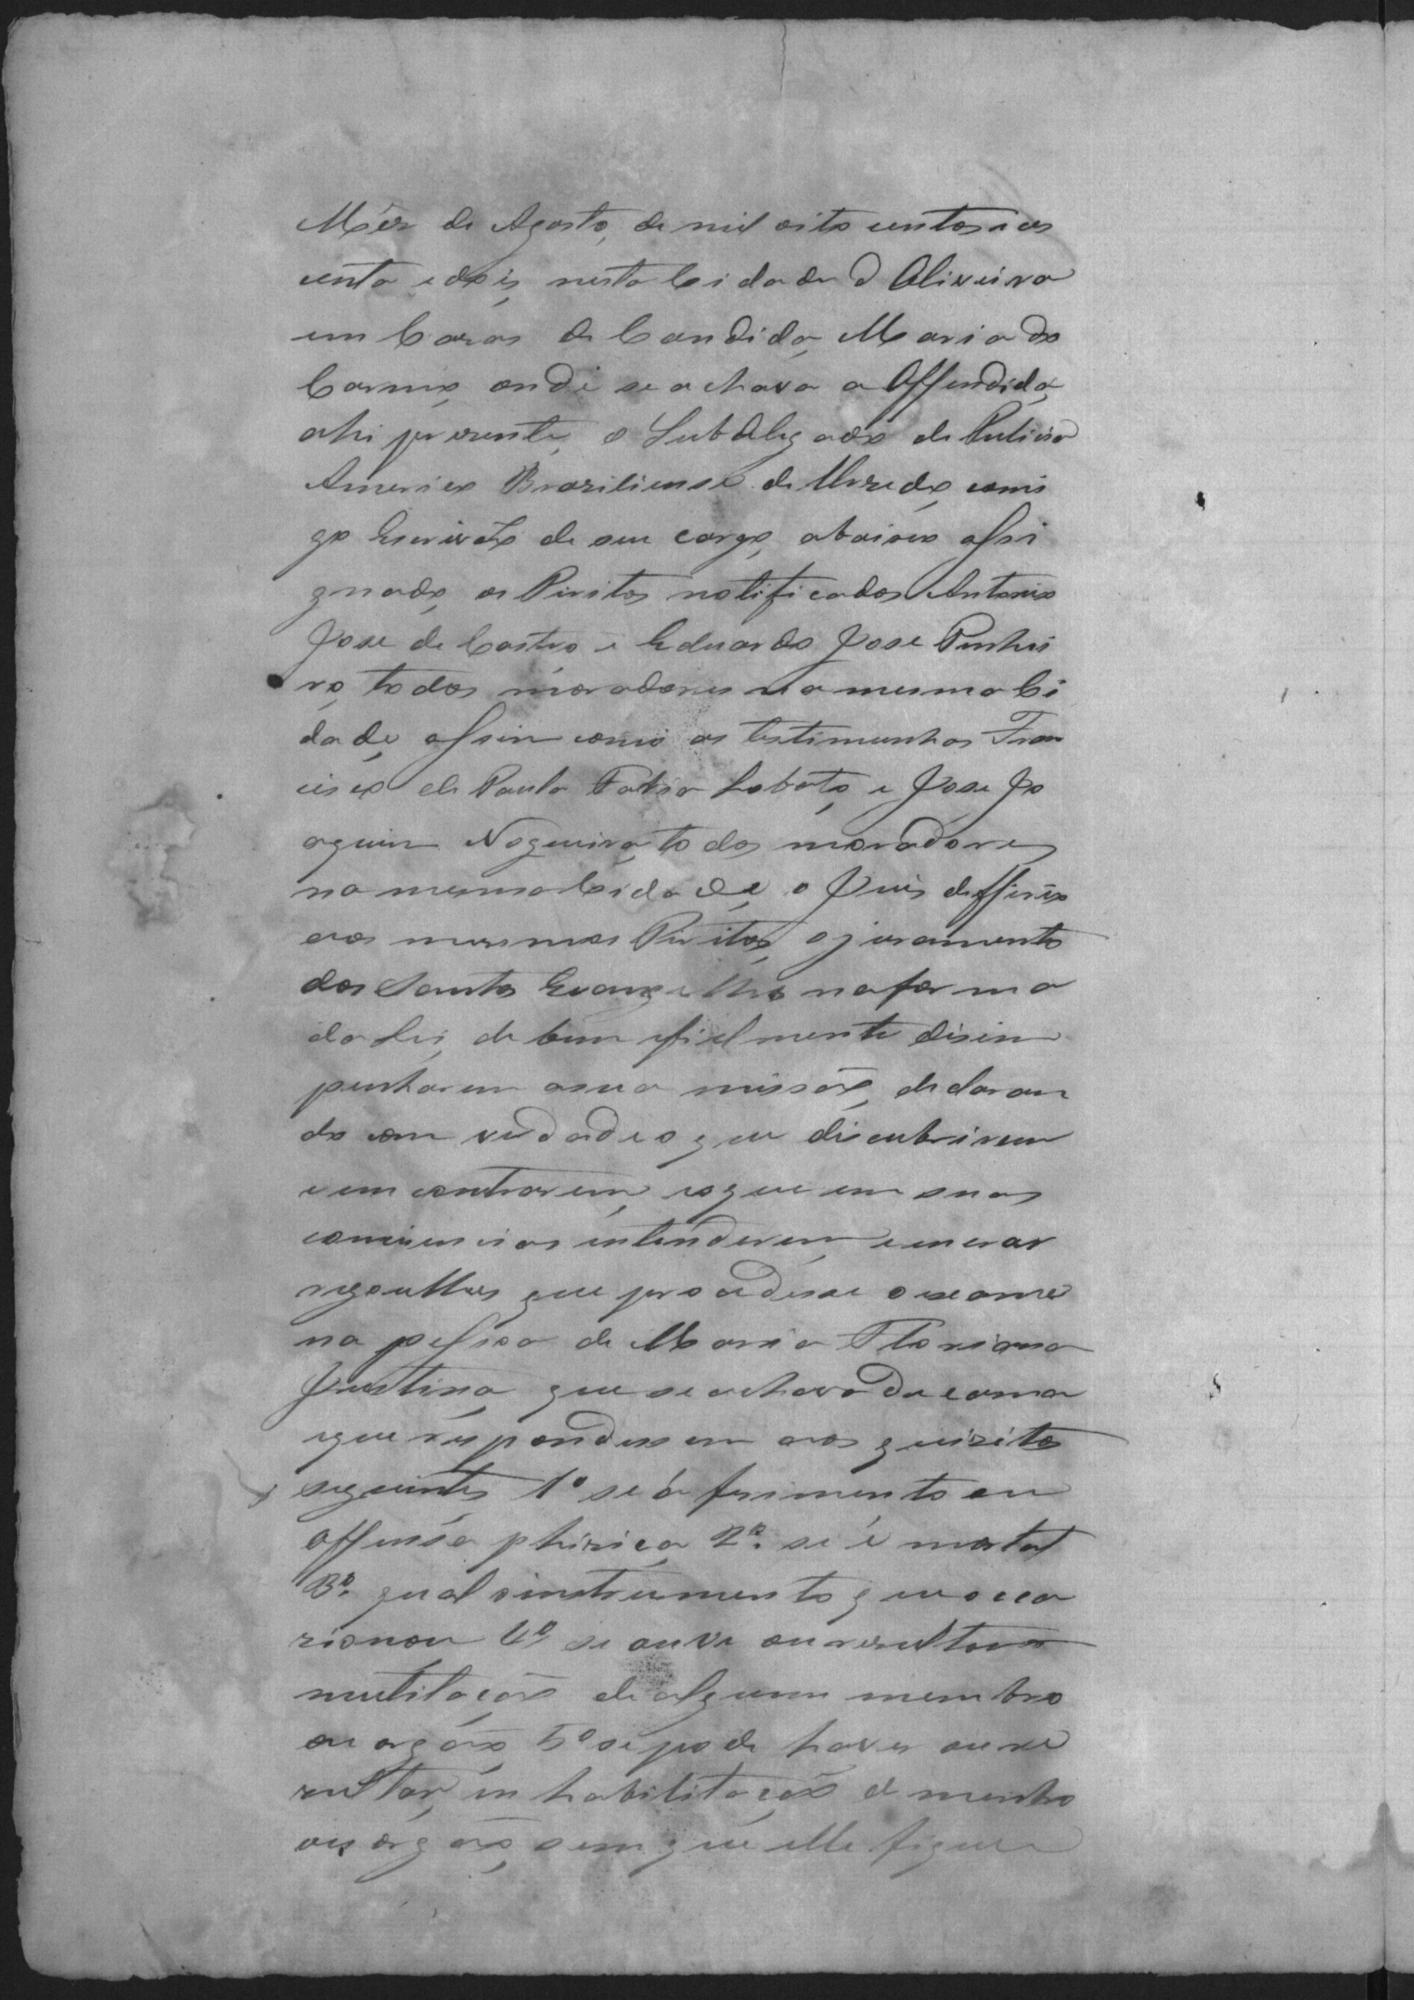 Mês de Agosto, de mil oito centos e ces
centa e dois, nesta Cidade d Oliveira
em Caras de Candida Maria do
Carmo, onde se achava a Offendida,
ahi presente, o Subdelegado de Pulicia
Americo Braziliense de Azevedo, comi
go Escrivão de seu cargo, abaixo assi
gnado, os Piritos notificados Antonio
Jose de Castro e Eduardo Jose Pinhei
ro, todos moradores na mesma Ci
dade, assim como as testimunhas Fran
cisco de Paula Lobato, e Jose Jo
aquim Nogueira, todos moradores
na mesma Cidade, o Juis defferio
aos mesmos Piritos, o juramento
dos Santos Evangelhos na forma
da Lei, de bem e fielmente disim
penharem a sua missão, declaran
do com verdade o que discubrirem
e em contrarem, e o que em suas
conciencias intenderem, e encar
regoulhes que procedesse o exame
na pessoa de Maria Floriana
Justina, que se achava de cama
e que respondessem aos quizitos
seguintes 1º se á ferimento ou
offensa phizica, 2º se é mortal
3º qual o instrumento que occa
zionou 4º se ouve ou resultou
mutilação de algum membro
ou orgão, 5º se pode haver ou re
zultar, in habilitação d menbro
ou orgão, sem que elle fique